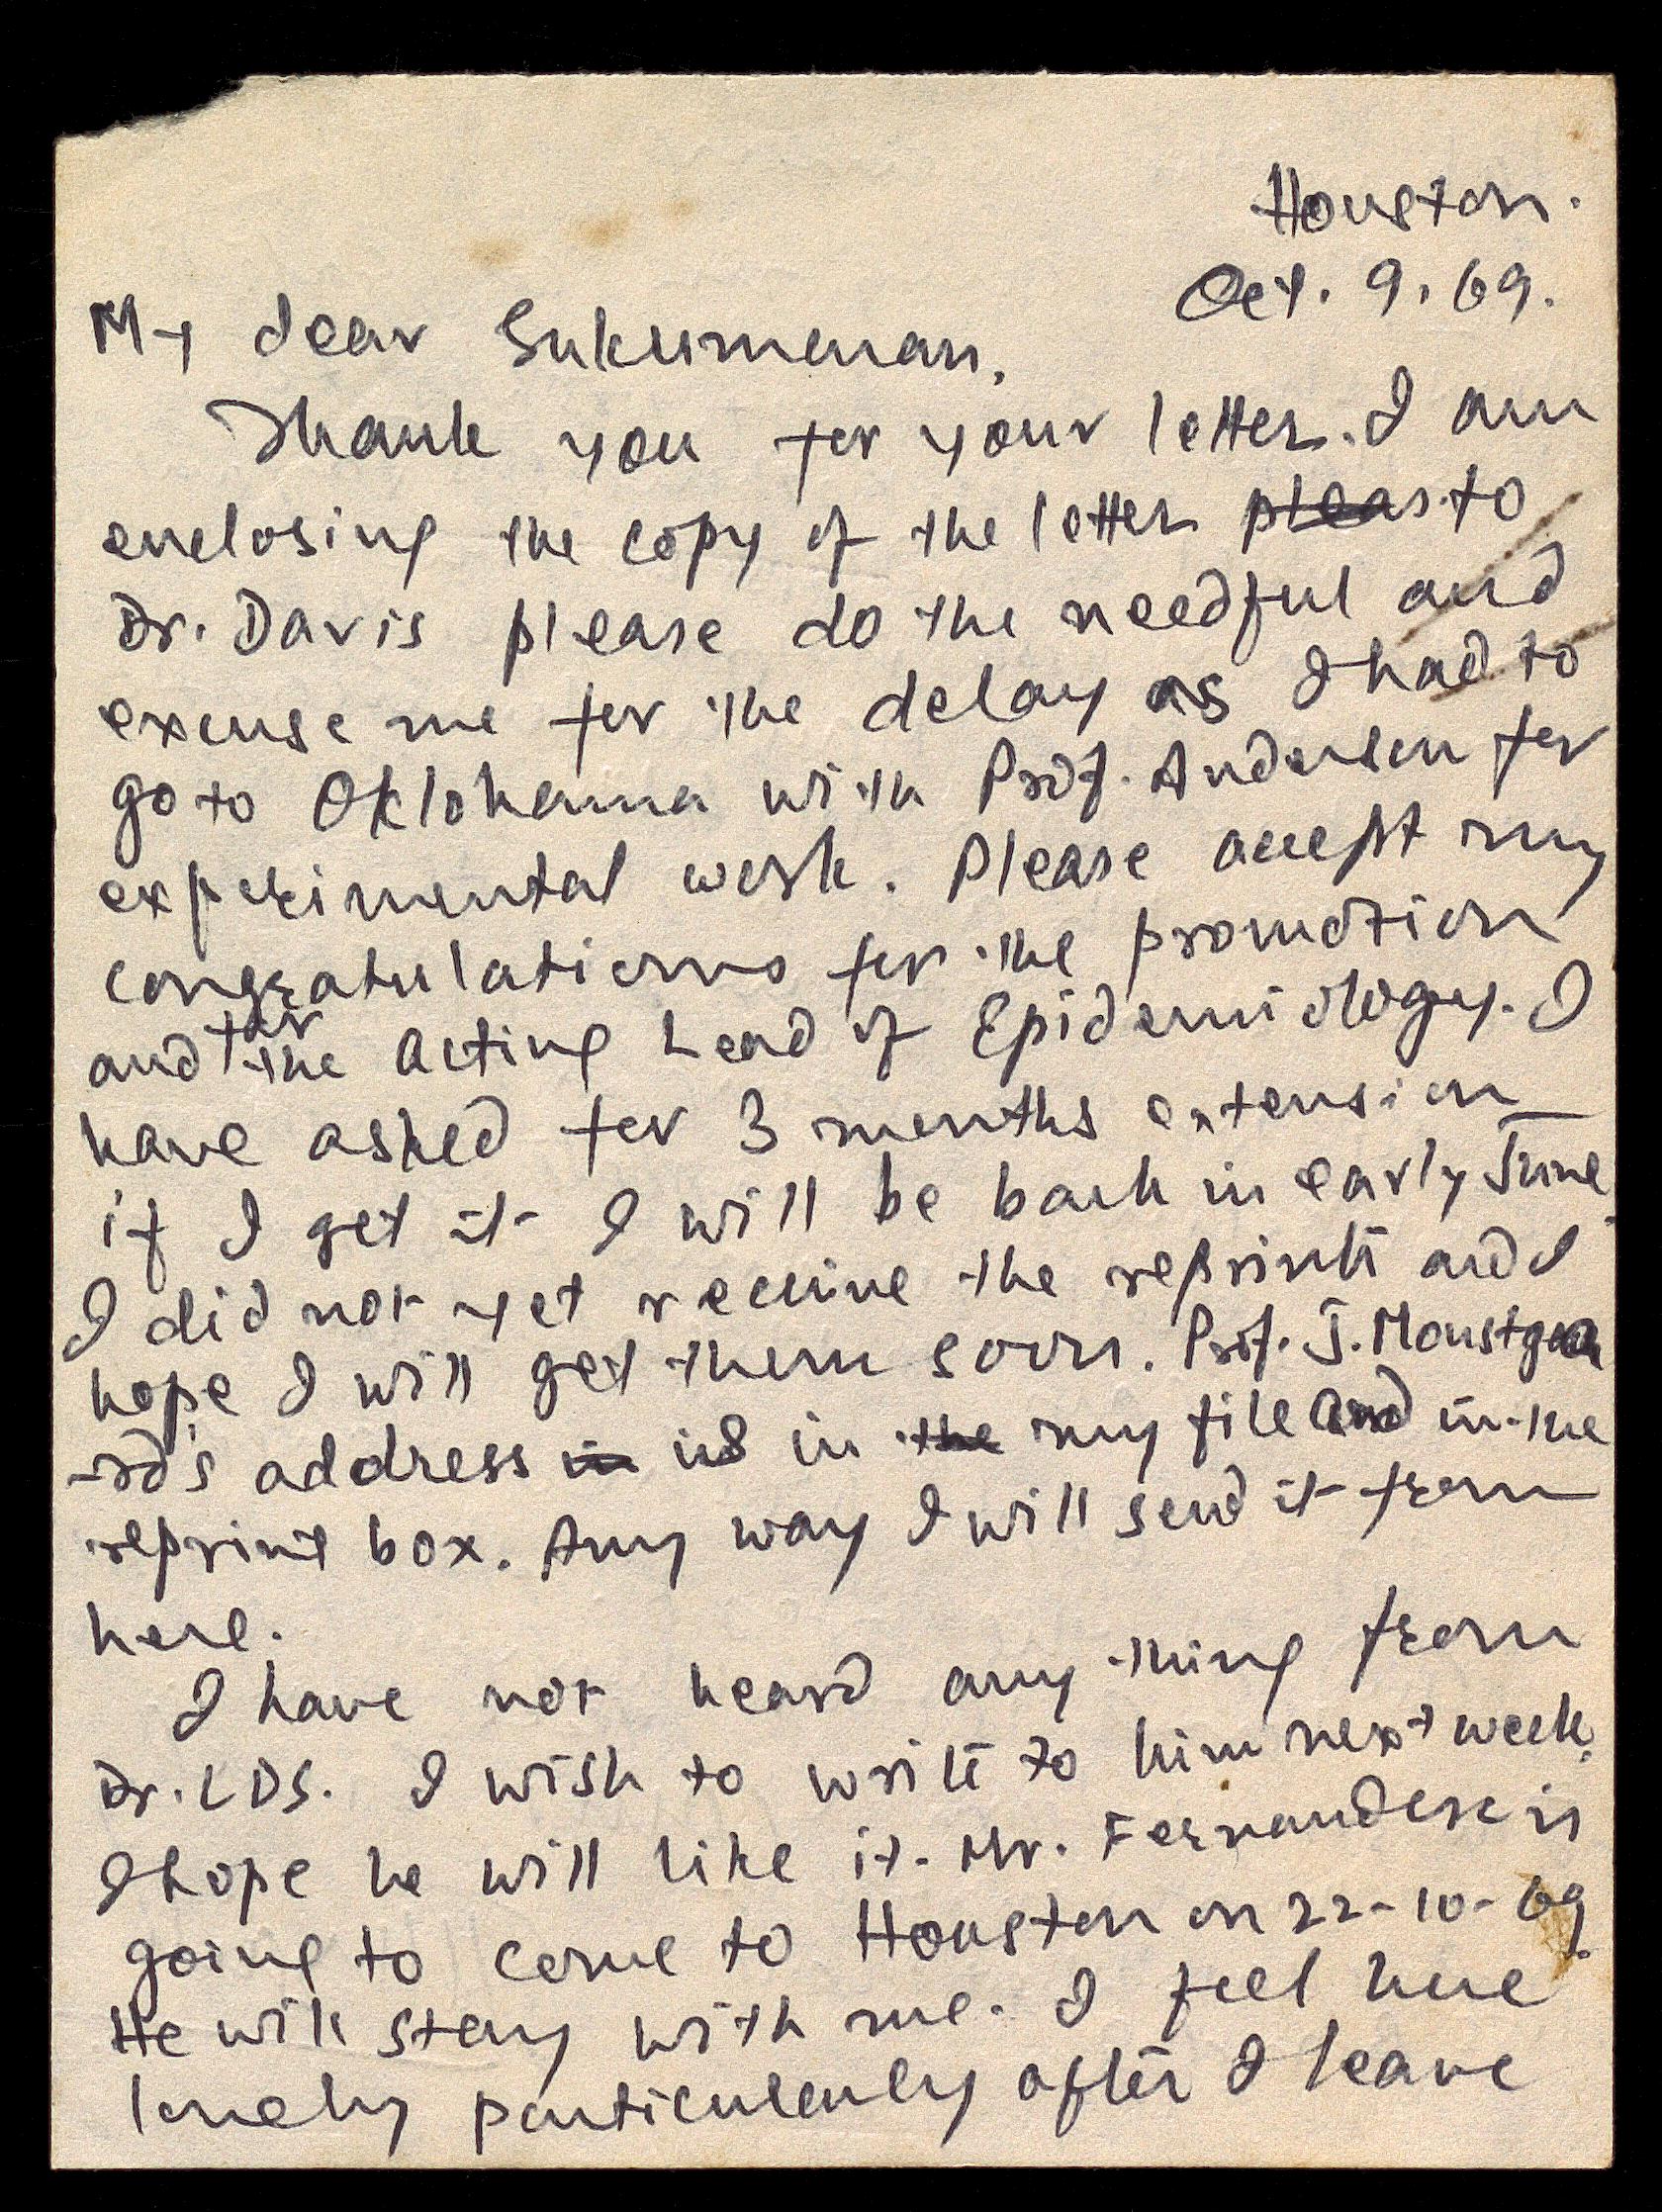 Houston.
Oct. 9. 69.
My dear Sukumaran,
Thank you for your letter. I am
enclosing the copy of the letter pleas to
Dr. Davis please do the needful and
excuse me for the delay as I had to
go to Oklohama with Prof. Andersen for
experimental work. Please accept my
congratulations for the promotion
and for the Acting head of Epidemiology. I
have asked for 3 months extension
if I get it I will be back in early June.
I did not yet receive the reprints and I
hope I will get them soon. Prof. J. Moustgaa
-rd's address in is in the my file and in the
reprint box. Any way I will send it from
here.
I have not heard any thing from
Dr. LDS. I wish to write to him next week.
I hope he will like it. Mr. Fernandese is
going to come to Houston on 22-10-69.
He will stay with me. I feel here
lonely particularly after I leave